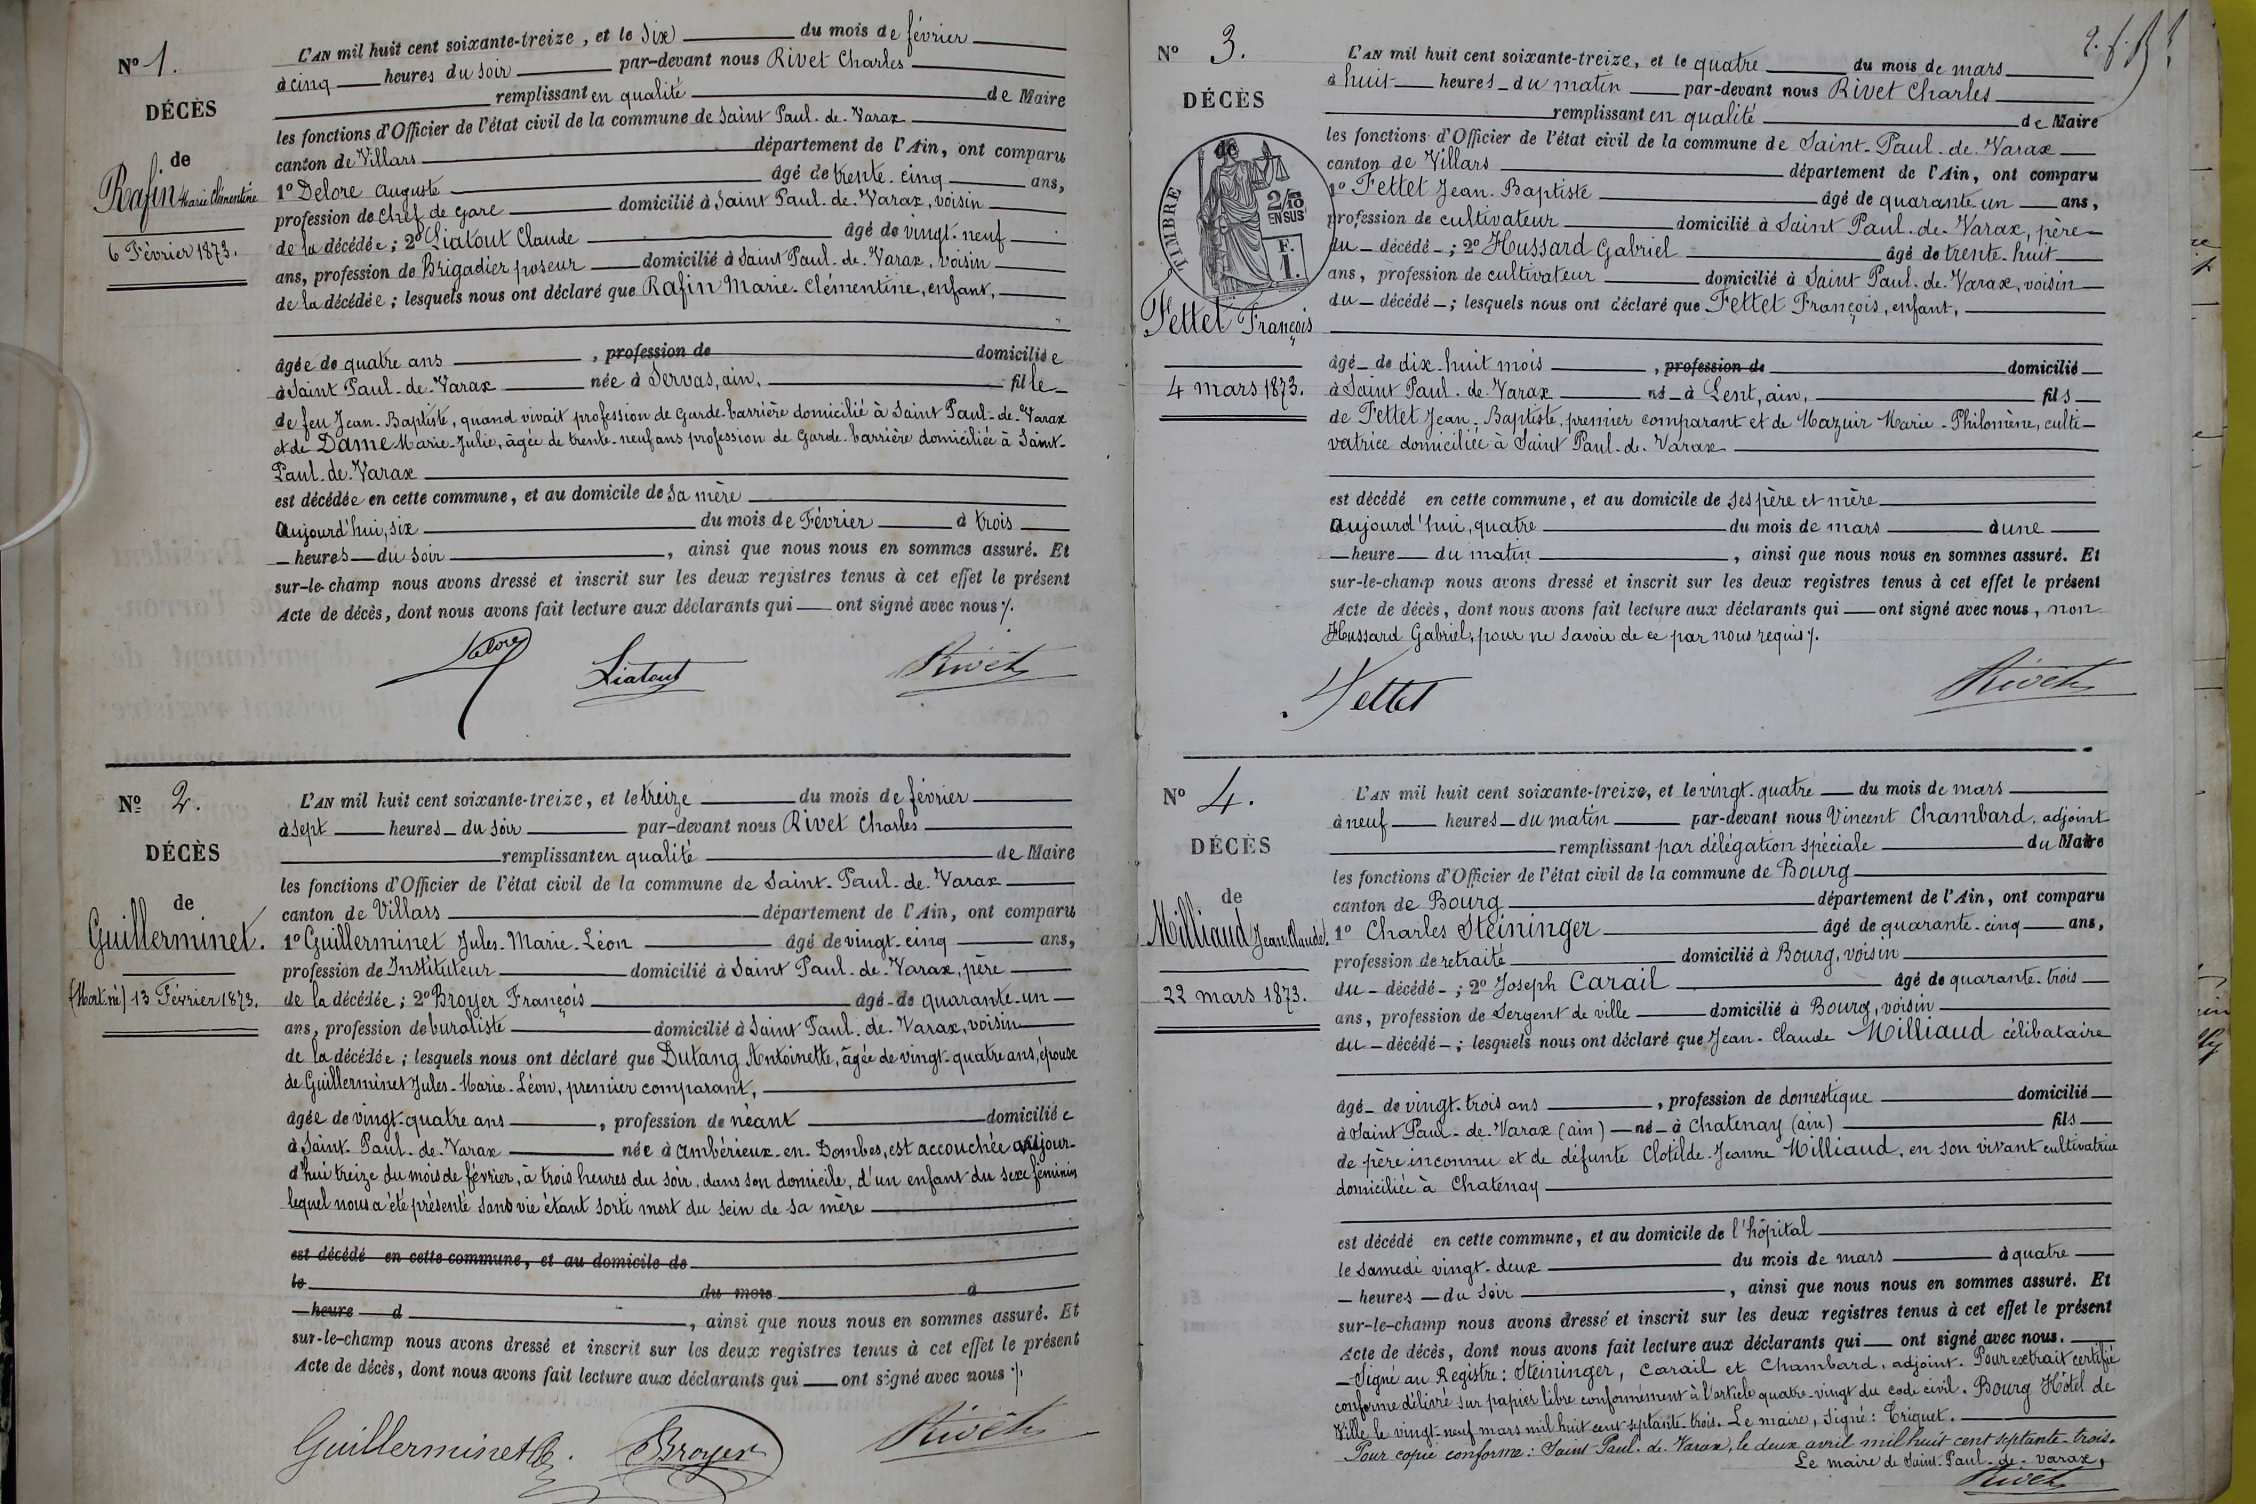 No 1.
DÉCÈS
de
Rafin Marie Clémentine
6 Février 1873.
L'AN mil huit cent soixante-treize, et le six du mois de février
à cinq heures du soir par-devant nous Rivet Charles
remplissant en qualité de Maire
les fonctions d'Officier de l'état civil de la commune de Saint Paul-de-Varax
canton de Villars département de l'Ain, ont comparu
1º Delore Auguste âgé de trente-cinq ans,
profession de Chef de gare domicilié à Saint Paul-de-Varax, voisin
de la décédée; 2º Liatout Claude âgé de vingt-neuf
ans, profession de Brigadier poseur domicilié à Saint Paul-de-Varax, voisin
de la décédée; lesquels nous ont déclaré que Rafin Marie-Clémentine, enfant,
âgée de quatre ans, profession de domiciliée
à Saint Paul-de-Varax née à Servas, ain, fille
de feu Jean-Baptiste, quand vivait profession de Garde-barrière domicilié à Saint Paul-de-Varax
et de DAME Marie-Julie, âgée de trente-neuf ans profession de Garde-barrière domiciliée à Saint-
Paul-de-Varax
est décédée en cette commune, et au domicile de sa mère
aujourd'hui, six du mois de Février à trois
heures du soir, ainsi que nous nous en sommes assuré. Et
sur-le-champ nous avons dressé et inscrit sur les deux registres tenus à cet effet le présent
Acte de décès, dont nous avons fait lecture aux déclarants qui ont signé avec nous ./.
Delore Liatout Rivet
No 2.
DÉCÈS
de
Guillerminet.
(Mort-né) 13 Février 1873.
L'AN mil huit cent soixante-treize, et le treize du mois de février
à sept heures du soir par-devant nous Rivet Charles
remplissant en qualité de Maire
les fonctions d'Officier de l'état civil de la commune de Saint-Paul-de-Varax
canton de Villars département de l'Ain, ont comparu
1º Guillerminet Jules-Marie-Léon âgé de vingt-cinq ans,
profession de Instituteur domicilié à Saint Paul-de-Varax, père
de la décédée; 2º Broyer François âgé de quarante-un
ans, profession de buraliste domicilié à Saint Paul-de-Varax, voisin
de la décédée; lesquels nous ont déclaré que Dutang Antoinette, âgée de vingt-quatre ans, épouse
de Guillerminet Jules-Marie-Léon, premier comparant,
âgée de vingt-quatre ans, profession de néant domiciliée
à Saint-Paul-de-Varax née à Ambérieux-en-Dombes, est accouchée aujour-
d'hui treize du mois de février, à trois heures du soir, dans son domicile, d'un enfant du sexe féminin
lequel nous a été présenté sans vie étant sorti mort du sein de sa mère
est décédé en cette commune, et au domicile de
le du mois à
heure d, ainsi que nous nous en sommes assuré. Et
sur-le-champ nous avons dressé et inscrit sur les deux registres tenus à cet effet le présent
Acte de décès, dont nous avons fait lecture aux déclarants qui ont signé avec nous ./.
Guillerminet Broyer Rivet
No 3.
DÉCÈS
de
TIMBRE
2/10
EN SUS
F.
1.
Fettet François
4 mars 1873.
L'AN mil huit cent soixante-treize, et le quatre du mois de mars
à huit heures du matin par-devant nous Rivet Charles
remplissant en qualité de Maire
les fonctions d'Officier de l'état civil de la commune de Saint-Paul-de-Varax
canton de Villars département de l'Ain, ont comparu
1º Fettet Jean-Baptiste âgé de quarante-un ans,
profession de cultivateur domicilié à Saint Paul-de-Varax, père
du décédé; 2º Hussard Gabriel âgé de trente-huit
ans, profession de cultivateur domicilié à Saint Paul-de-Varax, voisin
du décédé; lesquels nous ont déclaré que Fettet François, enfant,
âgé de dix-huit mois, profession de domicilié
à Saint Paul-de-Varax né à Lent, ain, fils
de Fettet Jean-Baptiste, premier comparant et de Mazuir Marie-Philomène, culti-
vatrice domiciliée à Saint Paul-de-Varax
est décédé en cette commune, et au domicile de ses père et mère
aujourd'hui, quatre du mois de mars à une
heure du matin, ainsi que nous nous en sommes assuré. Et
sur-le-champ nous avons dressé et inscrit sur les deux registres tenus à cet effet le présent
Acte de décès, dont nous avons fait lecture aux déclarants qui ont signé avec nous, non
Hussard Gabriel, pour ne savoir de ce par nous requis ./.
Fettet Rivet
No 4.
DÉCÈS
de
Milliaud Jean Claude.
22 mars 1873.
L'AN mil huit cent soixante-treize, et le vingt-quatre du mois de mars
à neuf heures du matin par-devant nous Vincent Chambard, adjoint
remplissant par délégation spéciale du Maire
les fonctions d'Officier de l'état civil de la commune de Bourg
canton de Bourg département de l'Ain, ont comparu
1º Charles Steininger âgé de quarante-cinq ans,
profession de retraité domicilié à Bourg, voisin
du décédé; 2º Joseph Carail âgé de quarante-trois
ans, profession de Sergent de ville domicilié à Bourg, voisin
du décédé; lesquels nous ont déclaré que Jean-Claude Milliaud célibataire
âgé de vingt-trois ans, profession de domestique domicilié
à Saint Paul-de-Varax (ain) né à Chatenay (ain) fils
de père inconnu et de défunte Clotilde-Jeanne Milliaud, en son vivant cultivatrice
domiciliée à Chatenay
est décédé en cette commune, et au domicile de l'hôpital
le samedi vingt-deux du mois de mars à quatre
heures du soir, ainsi que nous nous en sommes assuré. Et
sur-le-champ nous avons dressé et inscrit sur les deux registres tenus à cet effet le présent
Acte de décès, dont nous avons fait lecture aux déclarants qui ont signé avec nous.
Signé au Registre: Steininger, Carail et Chambard, adjoint. Pour extrait certifié
conforme délivré sur papier libre conformément à l'article quatre-vingt du code civil. Bourg Hôtel de
Ville le vingt-neuf mars mil huit cent septante-trois. Le maire, Signé: Triquet.
Pour copie conforme: Saint Paul-de-Varax, le deux avril mil huit cent septante-trois.
Le maire de Saint-Paul-de-Varax,
Rivet